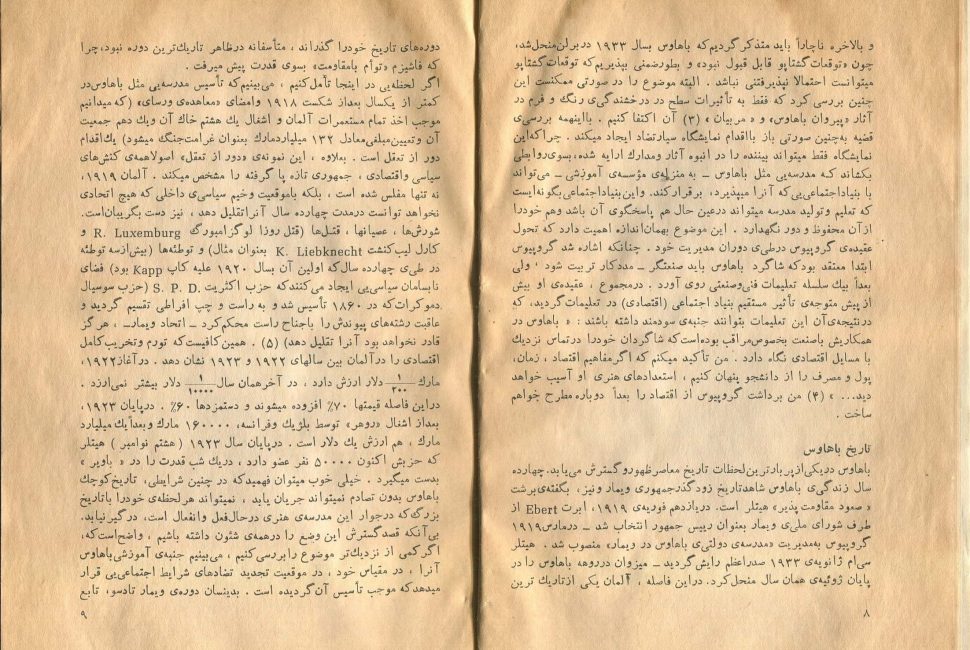 و بالاخره ناچاراً باید متذکر گردیم که باهاوس بسال ۱۹۳۳ در برلن منحل شد،
چون «توقعات گشتاپو قابل قبول نبود» و بطور ضمنی بپذیریم که توقعات گشتاپو
میتوانست احتمالا نپذیرفتنی نباشد . البته موضوع را در صورتی ممکنست این
چنین بررسی کرد که فقط به تأثیرات سطح در درخشندگی رنگ و فرم در
آثار «پیروان باهاوس» و «مربیان» (۳) آن اکتفا کنیم . بااینهمه بررسی
قضیه به‌چنین صورتی باز بااقدام نمایشگاه سیارتضاد ایجاد میکند . چرا که این
نمایشگاه فقط میتواند بیننده را در انبوه آثار ومدارك ارایه شده، بسوی روابطی
بکشاند که مدرسه‌یی مثل باهاوس ــ به منزله‌ی مؤسسه‌ی آموزشی ــ می‌تواند
با بنیاد اجتماعی‌یی که آنرا میپذیرد، برقرار کند. واین بنیاد اجتماعی بگونه‌ایست
که تعلیم وتولید مدرسه میتواند درعین حال هم پاسخگوی آن باشد وهم خودرا
از آن محفوظ و دور نگهدارد . این موضوع بهمان‌اندازه اهمیت دارد که تحول
عقیده‌ی گروپیوس درطی دوران مدیریت خود . چنانکه اشاره شد گروپیوس
ابتدا معتقد بود که شاگرد باهاوس باید صنعتگر ــ مددکار تربیت شود . ولی
بعداً بیك سلسله تعلیمات فنی‌وصنعتی روی آورد . درمجموع ، عقیده‌ی او بیش
از پیش متوجه‌ی تأثیر مستقیم بنیاد اجتماعی (اقتصادی) در تعلیمات گردید، که
درنتیجه‌ی آن این تعلیمات بتوانند جنبه‌ی سودمند داشته باشند : « باهاوس در
همکاریش باصنعت بخصوص مراقب بوده‌است که شاگردان خودرا درتماس نزدیك
با مسایل اقتصادی نگاه دارد . من تأکید میکنم که اگر مفاهیم اقتصاد ، زمان،
پول و مصرف را از دانشجو پنهان کنیم ، استعدادهای هنری او آسیب خواهد
دید... » (۴) من برداشت گروپیوس از اقتصاد را بعداً دوباره مطرح خواهم
ساخت .
تاریخ باهاوس
باهاوس دریکی‌از پربارترین لحظات تاریخ معاصر ظهورو گسترش می‌یابد. چهارده
سال زندگی‌ی باهاوس شاهد تاریخ زودگذر جمهوری ویمار ونیز، بگفته‌ی برشت
« صعود مقاومت پذیر» هیتلر است. دریازدهم فوریه‌ی ۱۹۱۹، ابرت Ebert از
طرف شورای ملی‌ی ویمار بعنوان رییس جمهور انتخاب شد ــ درمارس ۱۹۱۹
گروپیوس به‌مدیریت «مدرسه‌ی دولتی‌ی باهاوس در ویمار» منصوب شد . هیتلر
سی‌ام ژانویه‌ی ۱۹۳۳ صدراعظم رایش گردید ــ میزوان در روهه باهاوس را در
پایان ژوئیه‌ی همان سال منحل کرد. دراین فاصله ، آلمان یکی ازتاریك ترین
۸
دوره‌های تاریخ خودرا گذراند ، متأسفانه درظاهر تاریك‌ترین دوره نبود، چرا
که فاشیزم «توأم بامقاومت» بسوی قدرت پیش میرفت .
اگر لحظه‌یی در اینجا تأمل کنیم ، می‌بینیم که تأسیس مدرسه‌یی مثل باهاوس در
کمتر از یکسال بعداز شکست ۱۹۱۸ وامضای «معاهده‌ی ورسای» (که میدانیم
موجب اخذ تمام مستعمرات آلمان و اشغال یك هشتم خاك آن ویك دهم جمعیت
آن وتعیین مبلغی معادل ۱۳۲ میلیاردمارك بعنوان غرامت‌جنگ میشود) یك‌اقدام
دور از تعقل است . بعلاوه ، این نمونه‌ی «دور از تعقل» اصولا همه‌ی کنش‌های
سیاسی واقتصادی ، جمهوری تازه پا گرفته را مشخص میکند . آلمان ۱۹۱۹،
نه تنها مفلس شده است ، بلکه باموقعیت وخیم سیاسی‌ی داخلی که هیچ اتحادی
نخواهد توانست درمدت چهارده سال آنرا تقلیل دهد ، نیز دست بگریبان‌است.
شورش‌ها ، عصیانها ، قتل‌ها (قتل روزا لوگزامبورگ R. Luxemburg و
کارل لیب‌کنشت K. Liebknecht بعنوان مثال) و توطئه‌ها (بیش‌ازسه توطئه
در طی چهارده سال که اولین آن بسال ۱۹۲۰ علیه کاپ Kapp بود) فضای
نابسامان سیاسی‌یی ایجاد می‌کنند که حزب اکثریت S. P. D. (حزب سوسیال
دموکرات که در ۱۸۶۰ تأسیس شد و به راست و چپ افراطی تقسیم گردید و
عاقبت رشته‌های پیوندش را باجناح راست محکم کرد ــ اتحاد ویمار ــ هرگز
قادر نخواهد بود آنرا تقلیل دهد) (۵) . همین کافیست که تورم وتخریب کامل
اقتصادی را در آلمان بین سالهای ۱۹۲۲ و ۱۹۲۳ نشان دهد . در آغاز ۱۹۲۲،
مارك ۱/۲۰۰ دلار ارزش دارد ، در آخر همان سال ۱/۱۰۰۰۰ دلار بیشتر نمی‌ارزد .
دراین فاصله قیمتها ۷۰٪ افزوده میشوند و دستمزدها ۶۰٪ . درپایان ۱۹۲۳،
بعداز اشغال «روهر» توسط بلژیك وفرانسه، ۱۶۰۰۰۰ مارك وبعدآیك میلیارد
مارك ، هم ارزش یك دلار است . درپایان سال ۱۹۲۳ (هشتم نوامبر) هیتلر
که حزبش اکنون ۵۰۰۰۰ نفر عضو دارد ، دریك شب قدرت را در « باویر »
بدست میگیرد . خیلی خوب میتوان فهمید که در چنین شرایطی، تاریخ کوچك
باهاوس بدون تصادم نمیتواند جریان یابد ، نمیتواند هر لحظه‌ی خودرا باتاریخ
بزرگ که درجوار این مدرسه‌ی هنری درحال فعل وانفعال است، درگیر نیابد.
بی آنکه قصد گسترش این وضع را درهمه‌ی شئون داشته باشیم ، واضح‌است که،
اگر کمی از نزدیك‌تر موضوع را بررسی کنیم ، می‌بینیم جنبه‌ی آموزشی باهاوس
آنرا ، در مقیاس خود ، در موقعیت تجدید تضادهای شرایط اجتماعی‌یی قرار
میدهد که موجب تأسیس آن گردیده است . بدینسان دوره‌ی ویمار تادسو، تابع
۹